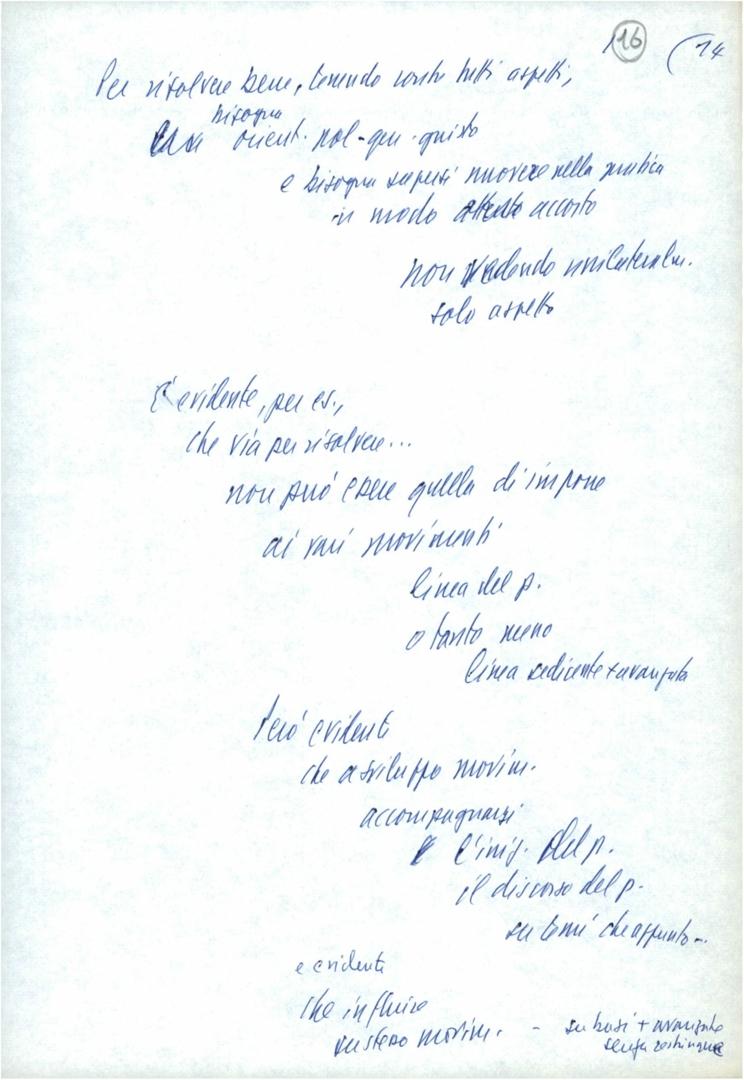 16 (14
Per risolvere bene, tenendo conto tutti aspetti,
bisogna
orient. pol-gen. giusto
e bisogna sapersi muovere nella pratica
in modo attento accorto
non vedendo unilateralm.
solo aspetto
È evidente, per es.,
che via per risolvere...
non può essere quella di imporre
ai vari movimenti
linea del p.
o tanto meno
linea sedicente + avanzata
Però evidente
che a sviluppo movim.
accompagnarsi
l'iniz. del p.
il discorso del p.
su temi che appunto...
e evidente
che influire
su stesso movim. - su basi + avanzate
senza